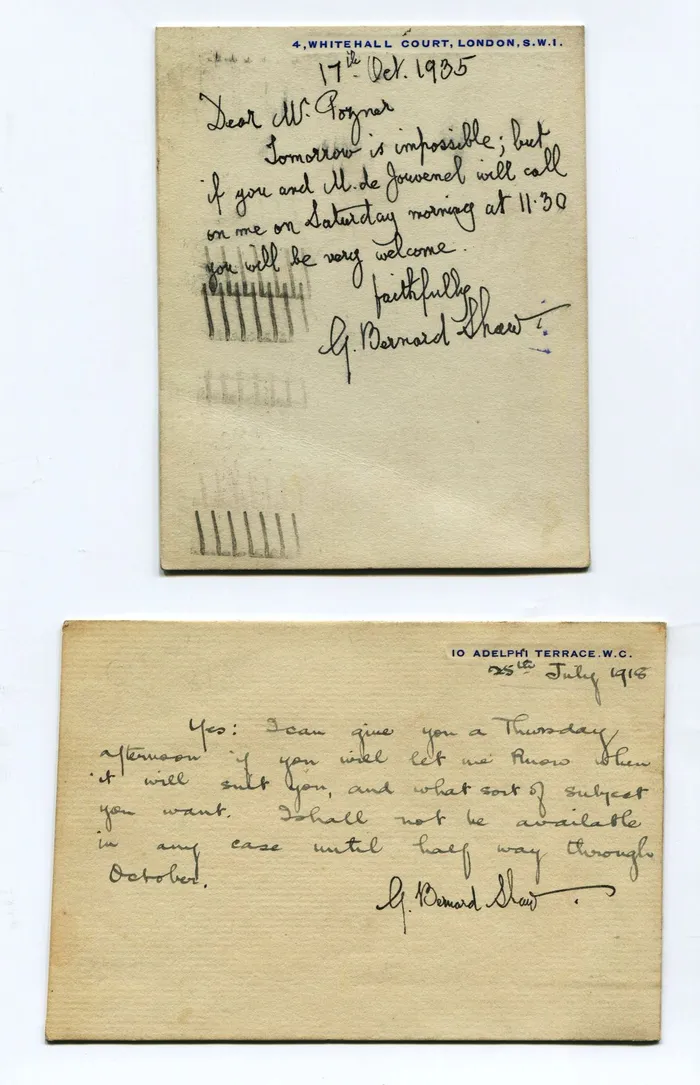 4, WHITEHALL COURT, LONDON, S.W.1.
17th Oct. 1935
Dear Mr. Pozner
Tomorrow is impossible; but
if you and M. de Jouvenel will call
on me on Saturday morning at 11·30
you will be very welcome.
faithfully
G. Bernard Shaw
10 ADELPHI TERRACE. W.C.
25th July 1918
Yes: I can give you a Thursday
afternoon if you will let me know when
it will suit you, and what sort of subject
you want. I shall not be available
in any case until half way through
October.
G. Bernard Shaw